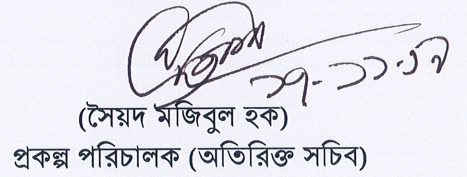 ১৭-১১-১৭
(সৈয়দ মজিবুল হক)
প্রকল্প পরিচালক (অতিরিক্ত সচিব)